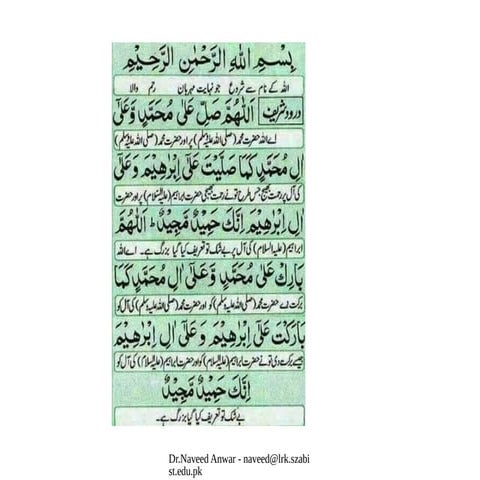 بِسْمِ اللهِ الرَّحْمٰنِ الرَّحِيْمِ
اللہ کے نام سے شروع جو نہایت مہربان رحم والا
درود شریف اَللّٰهُمَّ صَلِّ عَلٰى مُحَمَّدٍ وَّعَلٰٓى
اے اللہ حضرت محمد (صلی اللہ علیہ وسلم) پر اور حضرت محمد (صلی اللہ علیہ وسلم)
اٰلِ مُحَمَّدٍ كَمَا صَلَّيْتَ عَلٰٓى اِبْرٰهِيْمَ وَ عَلٰٓى
کی آل پر رحمت بھیج جس طرح تو نے رحمت بھیجی حضرت ابراہیم (علیہ السلام) پر اور حضرت
اٰلِ اِبْرٰهِيْمَ اِنَّكَ حَمِيْدٌ مَّجِيْدٌ ؕ اَللّٰهُمَّ
ابراہیم (علیہ السلام) کی آل پر بے شک تو تعریف کیا گیا بزرگ ہے۔ اے اللہ
بَارِكْ عَلٰى مُحَمَّدٍ وَّعَلٰٓى اٰلِ مُحَمَّدٍ كَمَا
برکت دے حضرت محمد (صلی اللہ علیہ وسلم) کو اور حضرت محمد (صلی اللہ علیہ وسلم) کی آل کو
بَارَكْتَ عَلٰٓى اِبْرٰهِيْمَ وَ عَلٰٓى اٰلِ اِبْرٰهِيْمَ
جیسے برکت دی تو نے حضرت ابراہیم (علیہ السلام) کو اور حضرت ابراہیم (علیہ السلام) کی آل کو
اِنَّكَ حَمِيْدٌ مَّجِيْدٌ
بے شک تو تعریف کیا گیا بزرگ ہے۔
Dr.Naveed Anwar - naveed@lrk.szabi
st.edu.pk